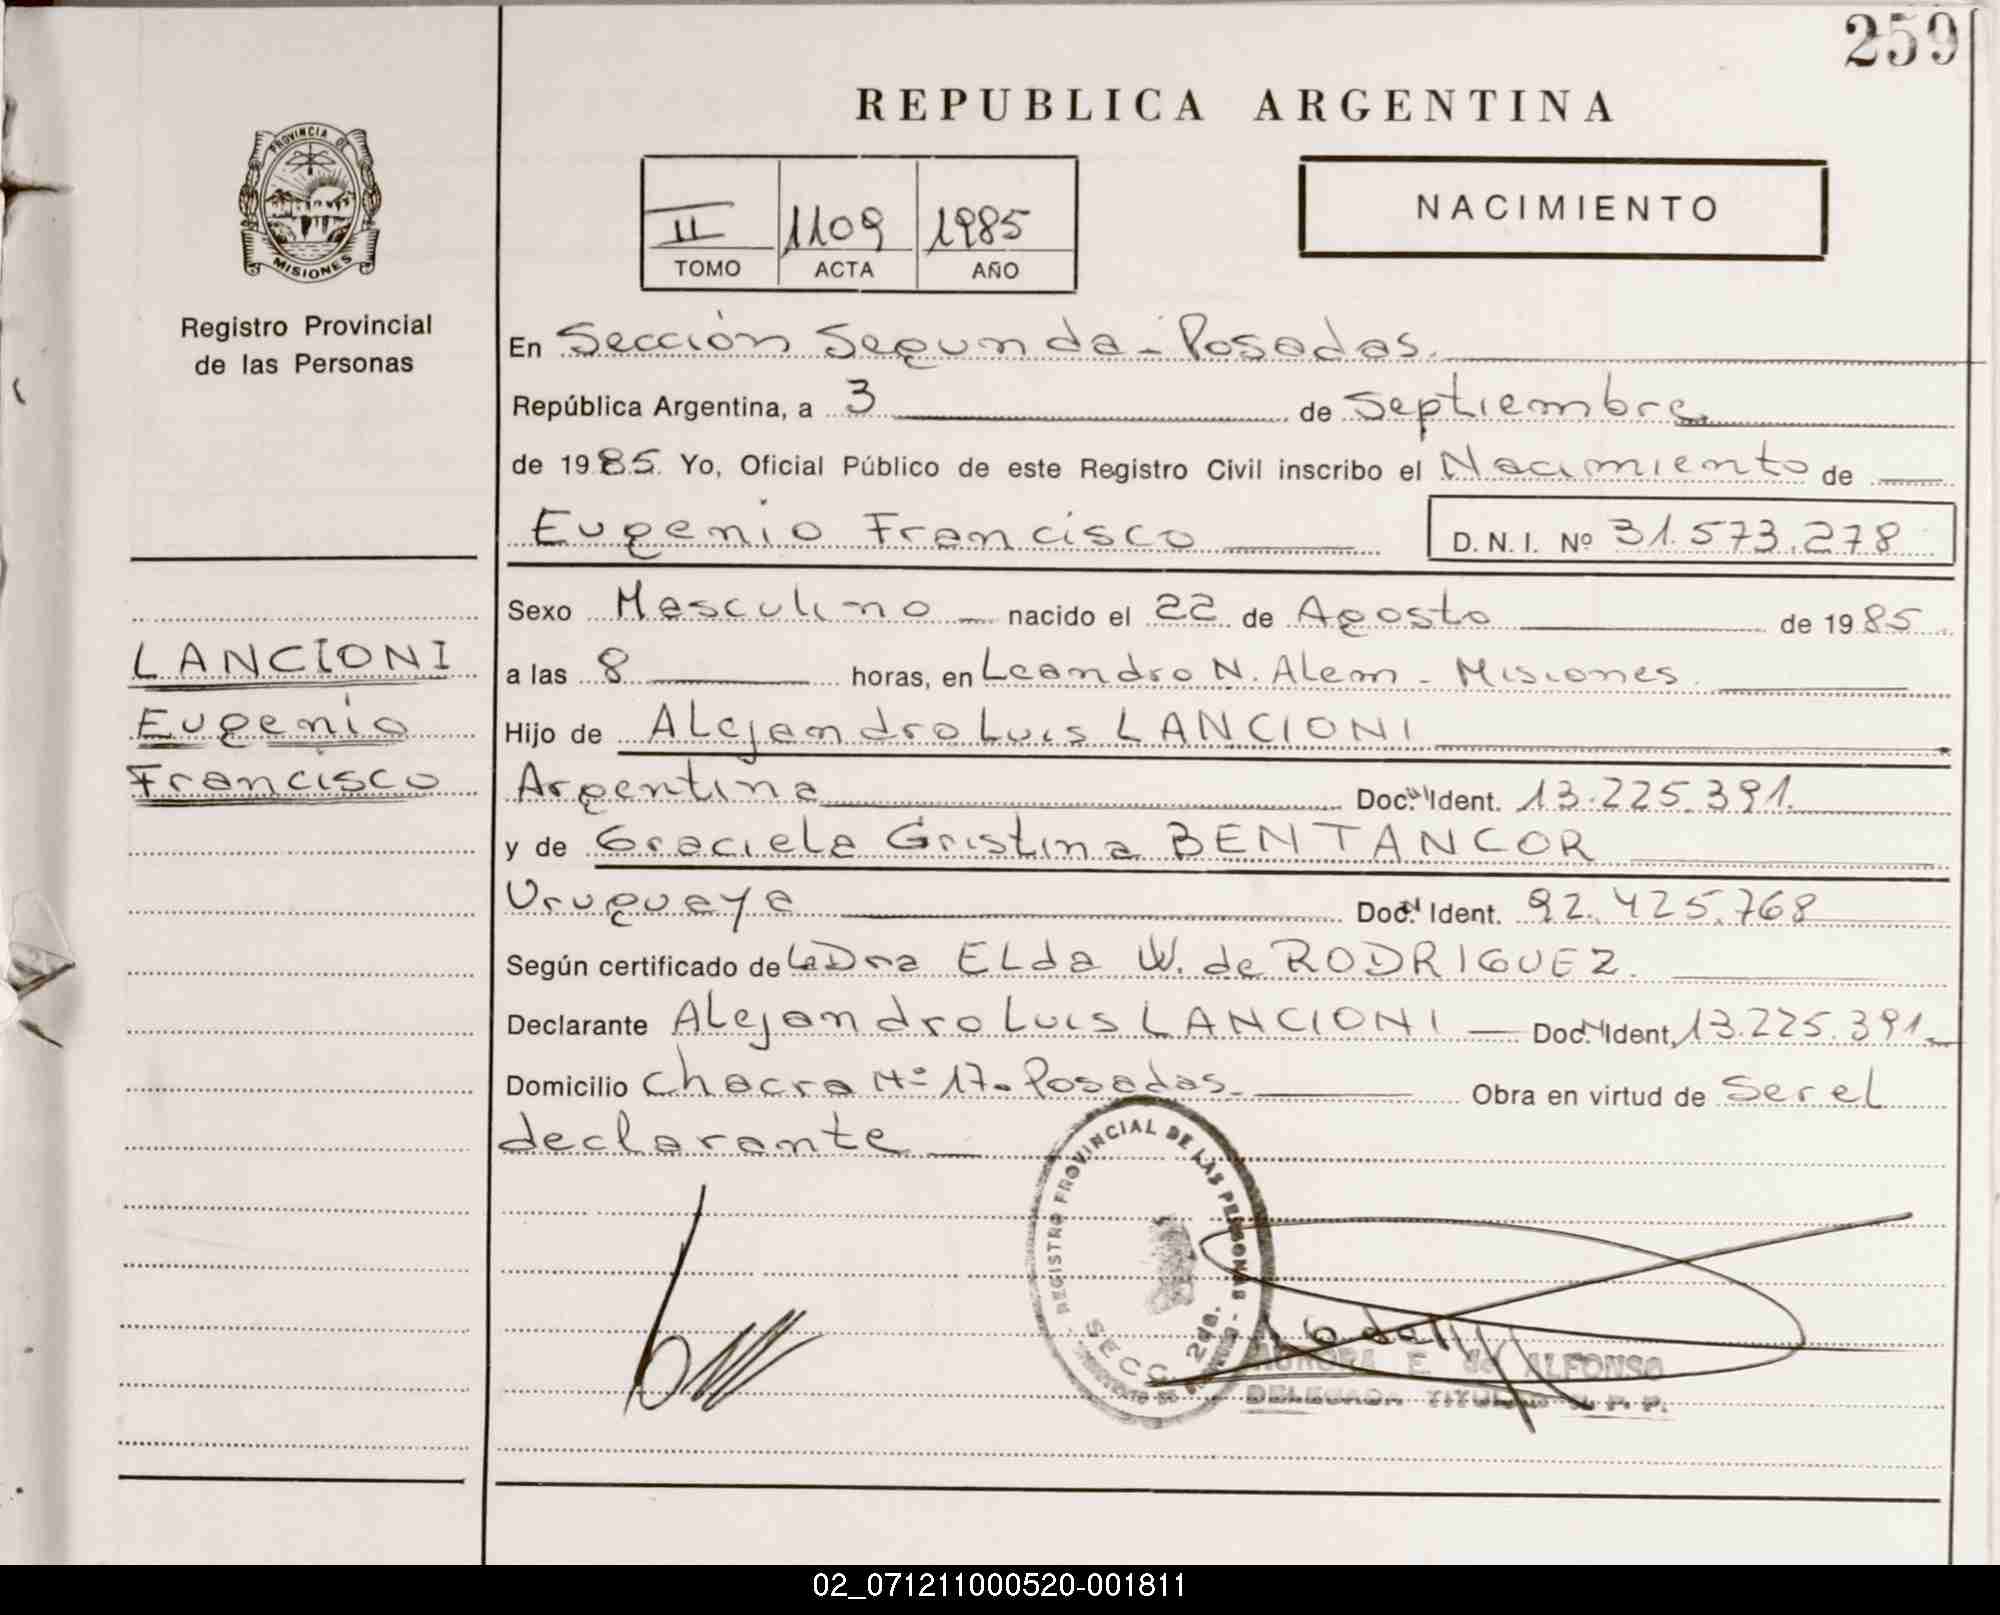 259
REPUBLICA ARGENTINA
PROVINCIA DE
MISIONES
Registro Provincial
de las Personas
II 1109 1985
TOMO ACTA AÑO
NACIMIENTO
En Sección Segunda - Posadas.
República Argentina, a 3 de Septiembre
de 1985. Yo, Oficial Público de este Registro Civil inscribo el Nacimiento de
Eugenio Francisco D. N. I. Nº 31.573.278
LANCIONI
Eugenio
Francisco
Sexo Masculino nacido el 22 de Agosto de 1985
a las 8 horas, en Leandro N. Alem - Misiones.
Hijo de Alejandro Luis LANCIONI
Argentina Doc. Ident. 13.225.391.
y de Graciela Cristina BENTANCOR
Uruguaya Doc. Ident. 92.425.768
Según certificado de la Dra ELda W. de RODRIGUEZ.
Declarante Alejandro Luis LANCIONI Doc. Ident. 13.225.391
Domicilio Chacra Nº 17 - Posadas. Obra en virtud de Ser el
declarante
REGISTRO PROVINCIAL DE LAS PERSONAS
SECC. 2da.
AURORA E. de ALFONSO
DELEGADA TITULAR R. P. P.
02_071211000520-001811